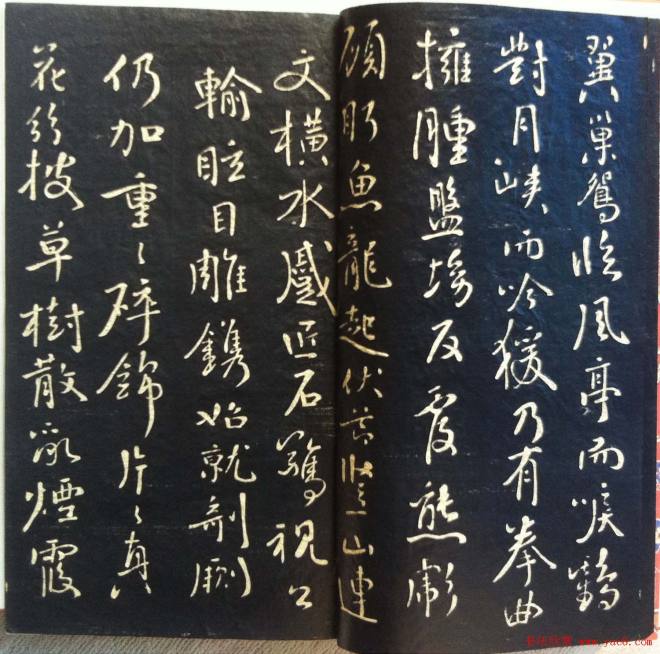 翼巢鴛臨風亭而唳鶴
對月峽而吟猨乃有拳曲
擁腫盤坳反覆熊彪
顧盻魚龍起伏節豎山連
文橫水蹙匠石驚視公
輸眩目雕鐫始就剞劂
仍加重〻碎錦片〻真
花紛披草樹散亂煙霞
书法欣赏 www.yac8.com